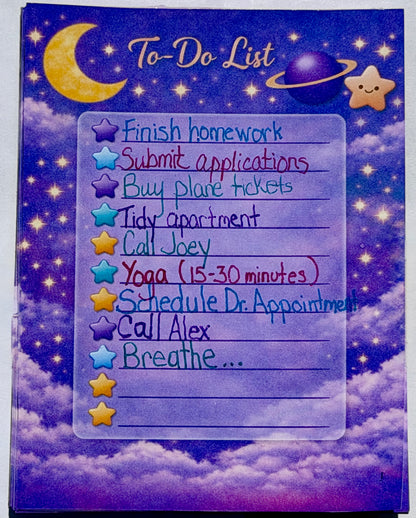 To-Do List
Finish homework
Submit applications
Buy plane tickets
Tidy apartment
Call Joey
Yoga (15-30 minutes)
Schedule Dr. Appointment
Call Alex
Breathe...